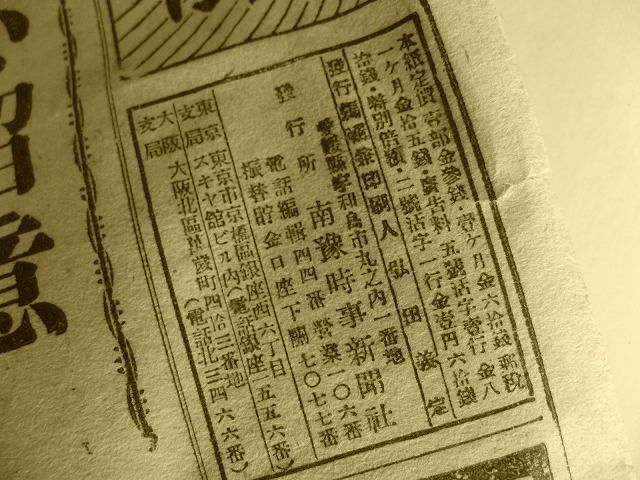 本紙定價壹部金參錢・壹ヶ月金六拾錢郵税
一ヶ月金拾五錢・廣告料 五號活字壹行 金八
拾錢・特別倍額・二號活字一行金壹円六拾錢
發行編輯兼印刷人 弘田義定
愛媛縣宇和島市丸之内一番地
發行所 南豫時事新聞社
電話編輯四四番營業一〇六番
振替貯金口座下關七〇七七番
東京支局 東京市京橋區銀座西六丁目
スキヤ館ビル内(電話銀座一五五六番)
大阪支局 大阪北區 町四拾三番地
(電話北三四六六番)
意